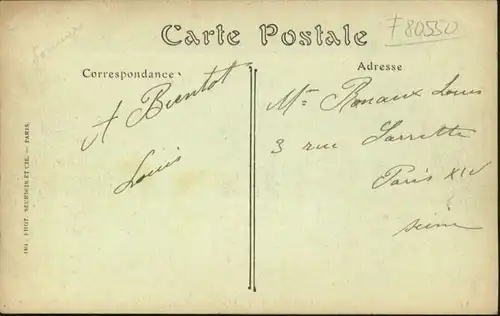 Carte Postale
F80550
Correspondance
A Bientot
Louis
Adresse
Mme Ronaux Louis
3 rue Sarrette
Paris XIV
Seine
PHOT. NEURDEIN ET CIE. — PARIS.